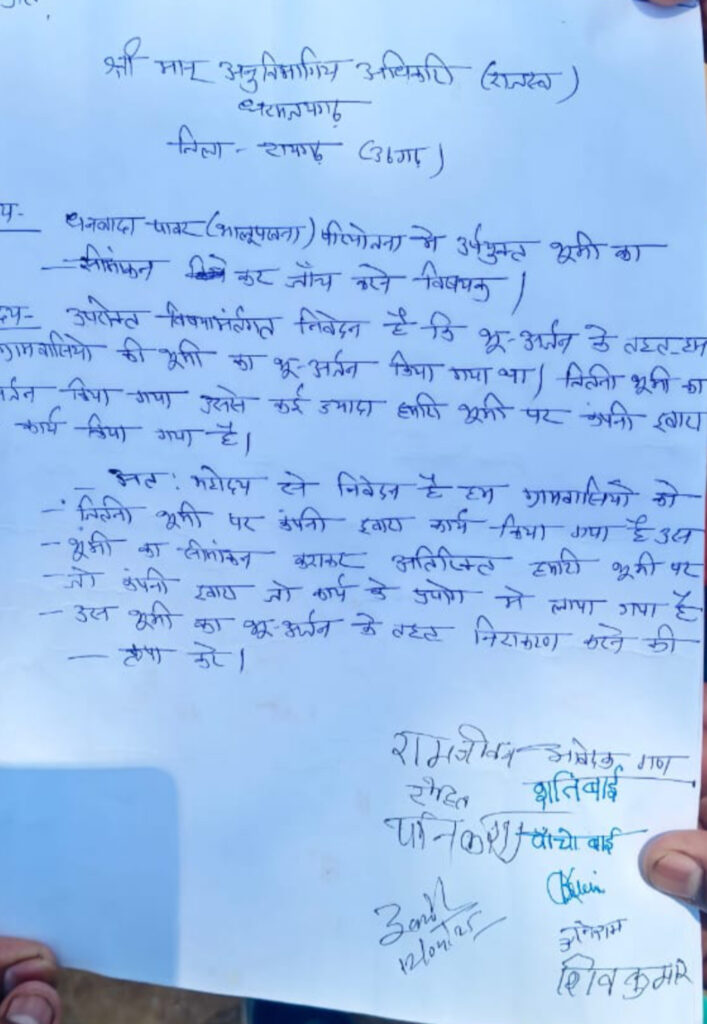 श्री मान् अनुविभागिय अधिकारी (राजस्व)
धरमजयगढ़
जिला - रायगढ़ (छ०ग०)
धनवादा पावर (भालूपखना) परियोजना मे उर्पयुक्त भूमी का
सीमांकन कर जाँच करने विषयक |
उपरोक्त विषयांर्तगत निवेदन है कि भू-अर्जन के तहत हम
ग्रामवासियो की भूमी का भू-अर्जन किया गया था | जितनी भूमी का
किया गया उससे कई ज्यादा हमारी भूमी पर कंपनी द्वारा
कार्य किया गया है |
अत : महोदय से निवेदन है हम ग्रामवासियो को
जितनी भूमी पर कंपनी द्वारा कार्य किया गया है उस
भूमी का सीमांकन कराकर अतिरिक्त हमारी भूमी पर
जो कंपनी द्वारा जो कार्य के उपयोग मे लाया गया है
उस भूमी का भू-अर्जन के तहत निराकरण करने की
कृपा करे |
रामजीवन आवेदक गण
रोहित
शांतिबाई
पांचो बाई
शिवकुमार